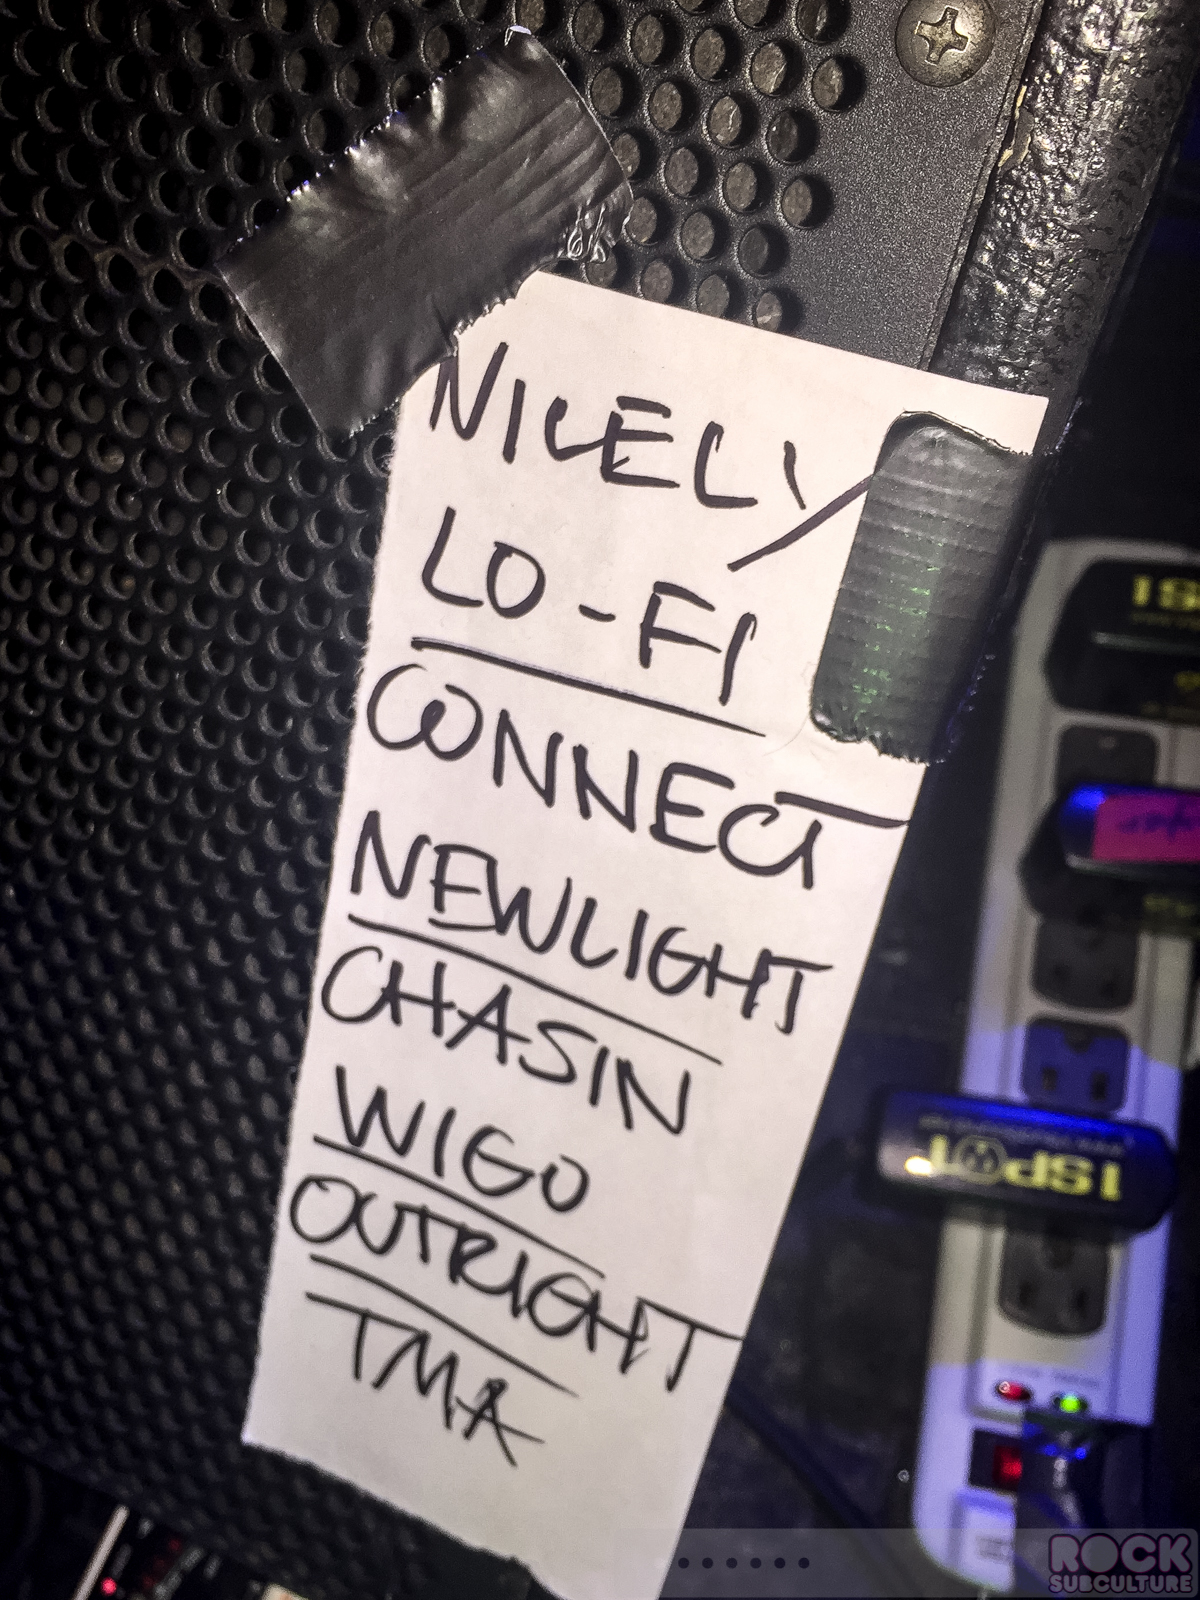 NICELY
LO-FI
CONNECT
NEWLIGHT
CHASIN
WIGO
OUTRIGHT
TMA
1SPOT
ROCK
SUBCULTURE